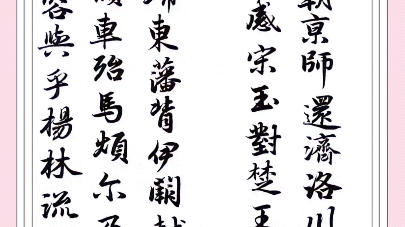 朝京師還濟洛川
感宋玉對楚王
歸東藩背伊闕越
傾車殆馬煩尔乃
容與乎楊林流